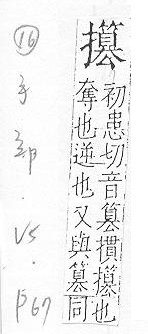 初患切音篡摜也
奪也逆也又與篡同
⑯手部.V5.P67